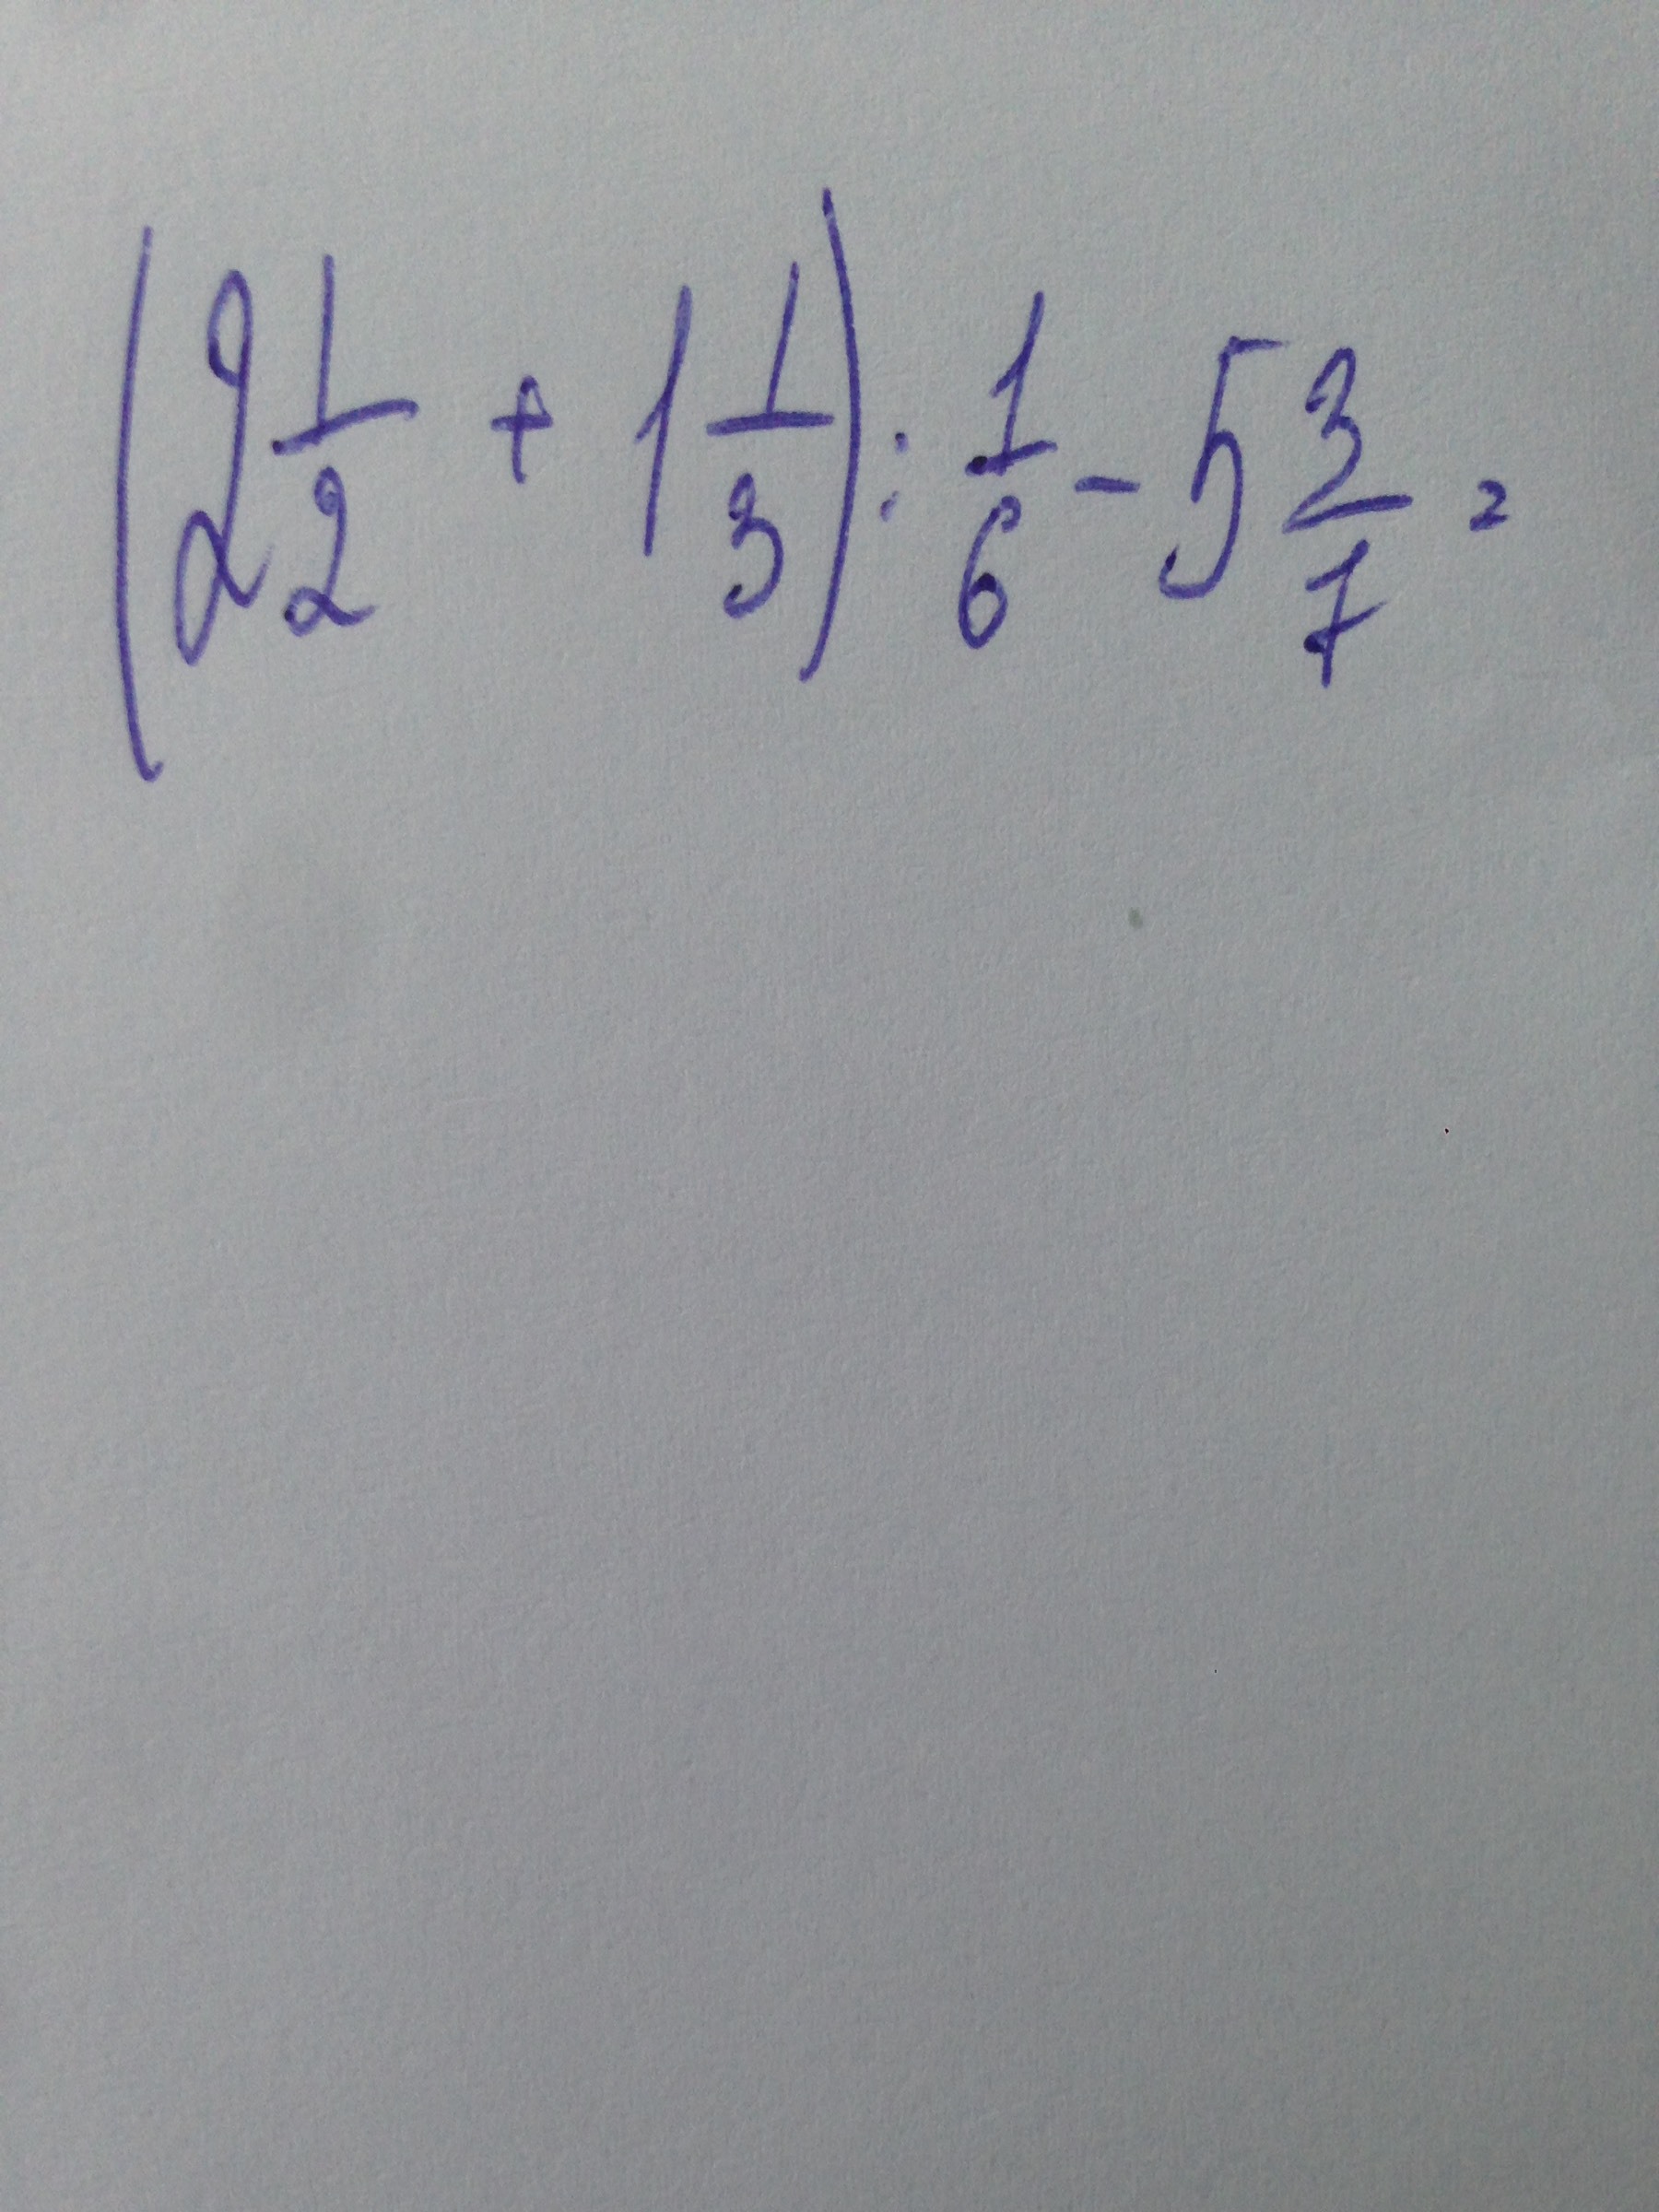 (2 1/2 + 1 1/3) : 1/6 - 5 3/7 =